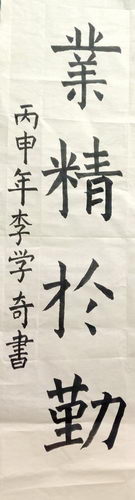 業精於勤
丙申年李学奇書